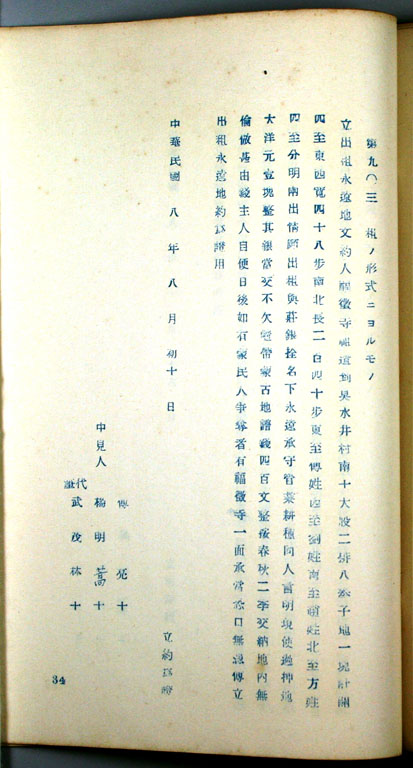 第九〇三 租ノ形式ニヨルモノ
立出租永遠地文約人福徵寺 遠到吳水井村南十大股二排八 子地一塊計開
四至東西寬四十八步南北長二百四十步東至傅姓西至劉姓南至趙姓北至方姓
四至分明兩出情願出租與莊銀拴名下永遠承守管業耕種同人言明現使過押地
大洋元壹塊整其銀當交不欠 帶蒙古地譜錢四百文整按春秋二季交納地內無
倫做甚由經主人自便日後如有蒙民人爭奪者有福徵寺一面承當 口無憑傅立
出租永遠地約 證用
中華民國 八年八月初十日
立約 證
中見人
傅 十
楊明蒿十
代證 武茂林十
34